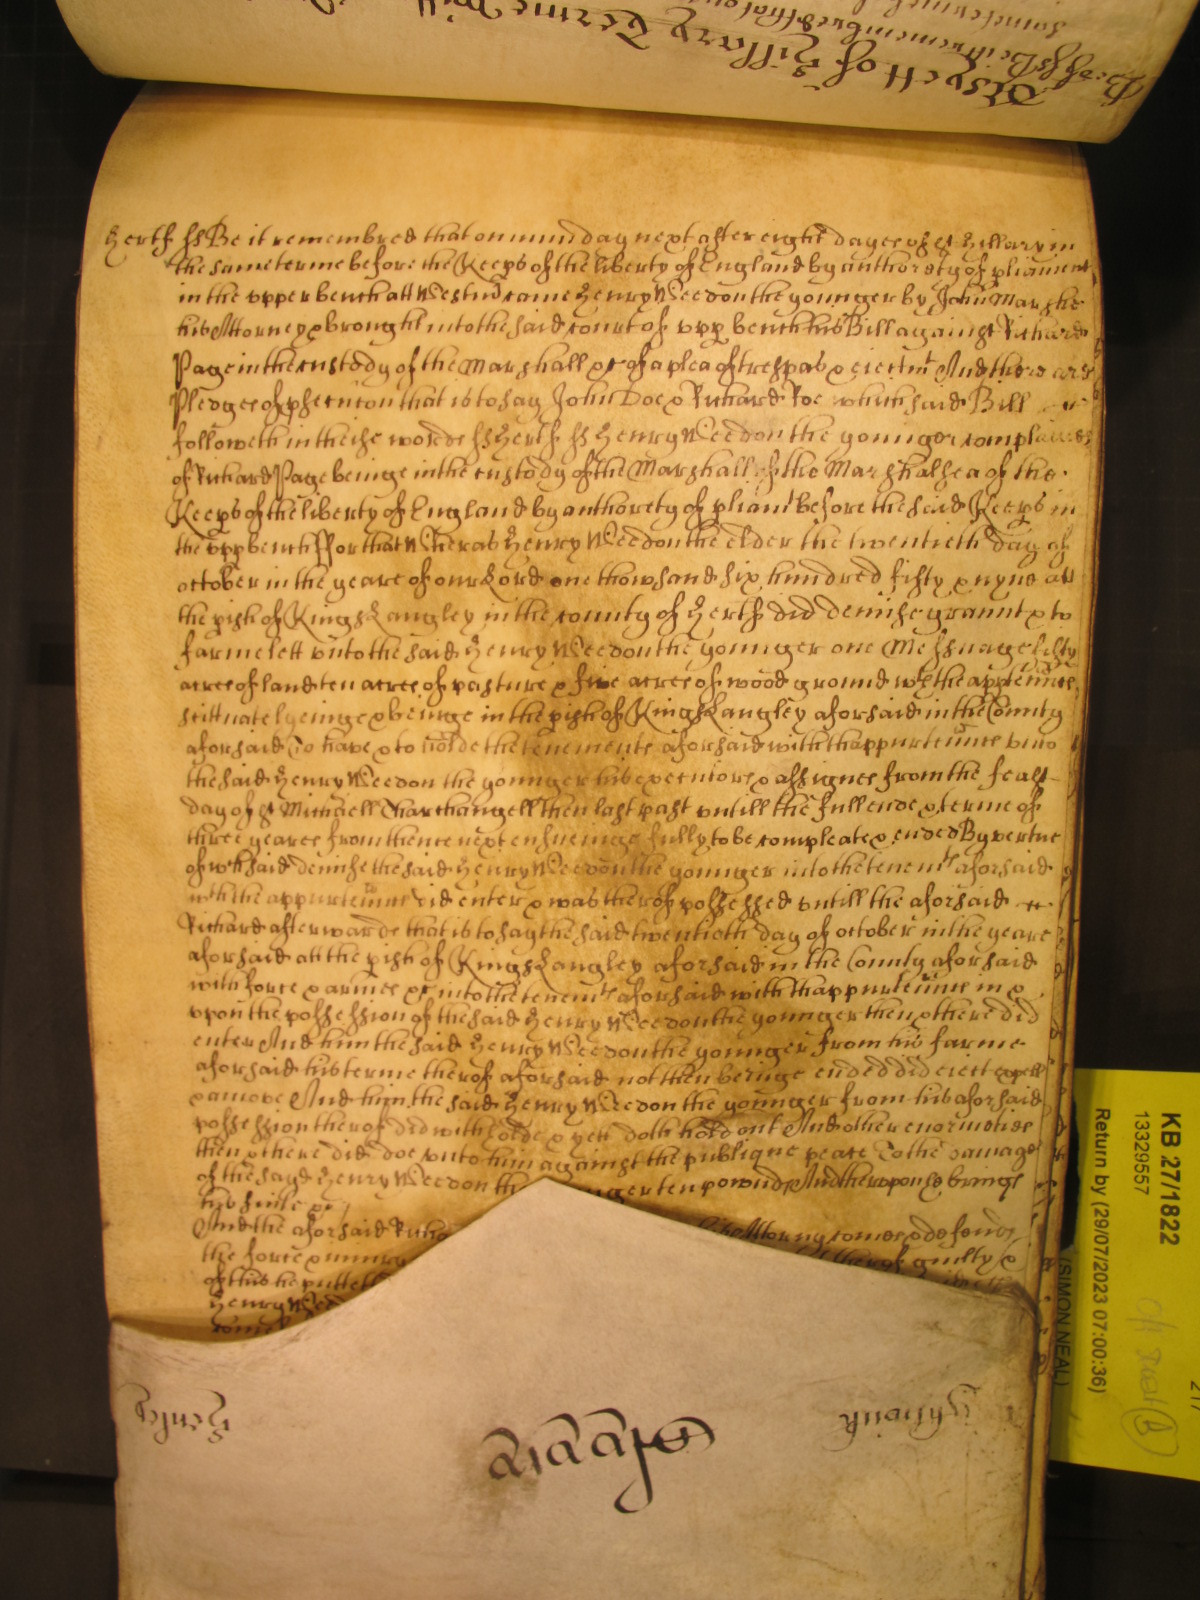 Hertf ss Be it remembred that on munday next after eight dayes of St Hillary in
the same terme before the Keeps of the liberty of England by authorety of pliament
in the upper bench att Westm came Henry Weedon the younger by John Marshe
his Attorney & brought into the said court of upp bench his Bill against Richard
Page in the custody of the Marshall &c of a plea of trespas & eiectmt And there are
Pledges of psecucon that is to say John Doe & Richard Roe which said Bill
followeth in theise words ss Hertf ss Henry Weedon the younger complaines
of Richard Page beinge in the custody of the Marshall of the Marshalsea of the
Keeps of the liberty of England by authorety of pliamt before the said Keeps in
the upp bench ffor that Wheras Henry Weedon the elder the twentieth day of
october in the yeare of our Lord one thowsand six hundred fifty & nyne att
the pish of Kings Langley in the county of Hertf did demise graunt & to
farme lett unto the said Henry Weedon the younger one Messuage fifty
acres of land ten acres of pasture & five acres of wood ground wth the apptennces
scittuate lyeinge & beinge in the pish of Kings Langley aforsaid in the County
aforsaid To have & to holde the tenements aforsaid with thappurtennces unto
the said Henry Weedon the younger his executors & assignes from the feast
day of St Michaell Tharchangell then last past untill the full ende & terme of
three yeares from thence next ensueinge fully to be compleate & ended By vertue
of wch said demise the said Henry Weedon the younger into the tenemts aforsaid
with the appurtennces did enter & was therof possessed untill the aforsaid
Richard afterwards that is to say the said twentieth day of october in the yeare
aforsaid att the pish of Kings Langley aforsaid in the County aforsaid
with force & armes &c into the tenemts aforsaid with thappurtennces in &
upon the possession of the said Henry Weedon the younger then & there did
enter And him the said Henry Weedon the younger from his farme
aforsaid his terme therof aforsaid not then beinge ended did eiect expell
& amove And him the said Henry Weedon the younger from his aforsaid
possession therof did withholde & yett doth hold out And other enormities
then & there did doe unto him against the publique peace To the damage
of the sayd Henry Weedon the nger ten pownds And therupon he brings
his suite &c
And the aforsaid Richa his Attorny comes & defends
the force & iniury therof guilty &
of this he puttet
Henry Weed
come
KB 27/1822
13329557
Return by (29/07/2023 07:00:36)
(SIMON NEAL)